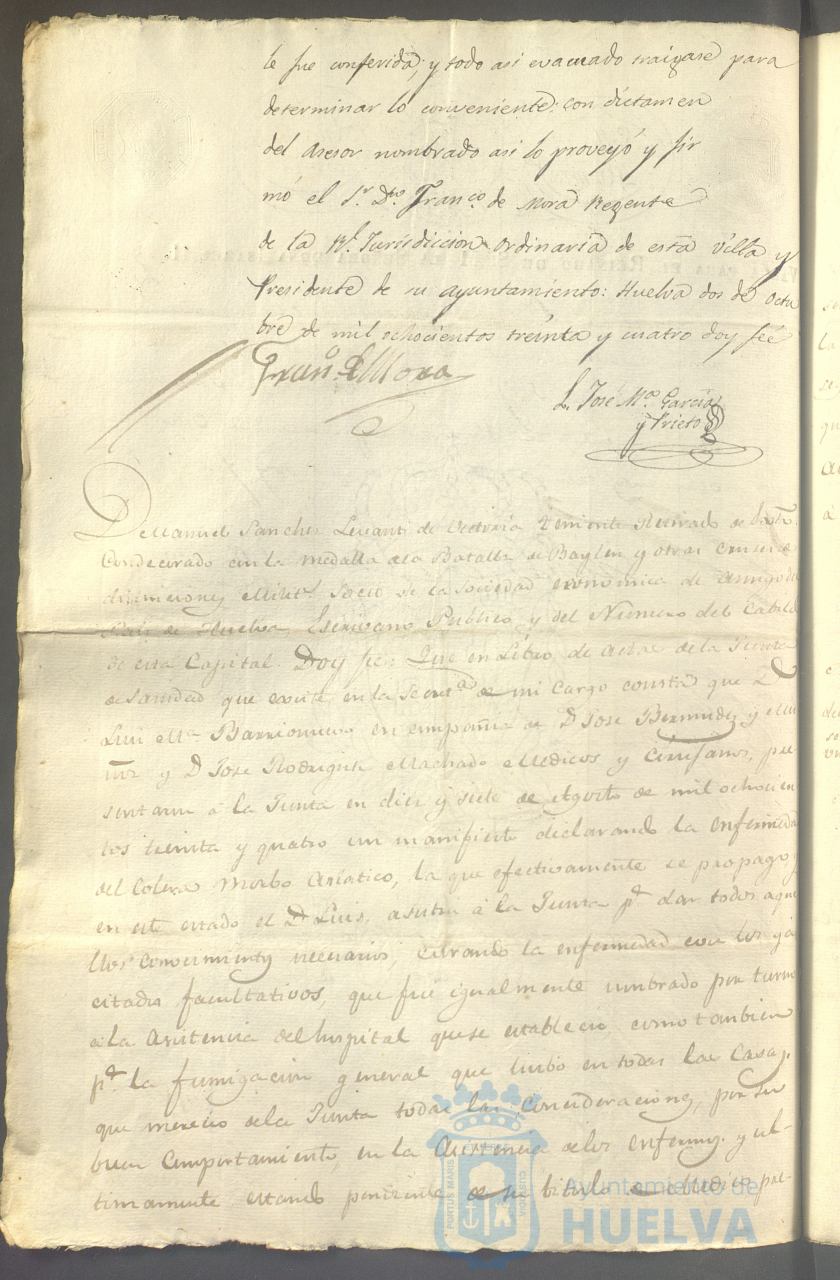 le fue conferida; y todo asi evacuado traigase para
determinar lo conveniente: con dictamen
del Asesor nombrado asi lo proveyó y fir
mó el Sr. Dn. Franco. de Mora Regente
de la Rl. Jurisdiccion Ordinaria de esta villa y
Presidente de su ayuntamiento: Huelva dos de Octu
bre de mil ochocientos treinta y cuatro doy feé
Franº. de Mora
L. José Mª. García
y Prieto
Dn. Manuel Sanchez Levanti de Victoria Teniente Retirado de
Condecorado con la medalla de la Batalla de Baylen y otras cruces
distinciones Milits. Socio de la Sociedad economica de Amigos del
Pais de Huelva, Escribano Publico y del Número del Cabildo
de esta Capital. Doy fee: Que en Libro de Actas de la Junta
de Sanidad que existe en la Secreta. de mi cargo consta que Dn.
Luis Mª. Barrionuevo en compañia de Dn. José Bermudez y Mu
ñoz y Dn. José Rodriguez Machado Medicos y Cirujanos, pre
sentaron á la Junta en diez y siete de Agosto de mil ochocien
tos treinta y quatro un manifiesto declarando la enfermeda
del Colera Morbo Asiatico, la que efectivamente se propago y
en este estado el Dn. Luis, asistía á la Junta pa. dar todos aque
llos conocimientos necesarios, curando la enfermedad con los ya
citados facultativos, que fue igualmente nombrado por turno
a la Asistencia del hospital que se establecio, como tambien
pa. la fumigacion general que hubo en todas las Casas,
que merecio de la Junta todas las Consideraciones, por su
buen Comportamiento, en la Asistencia de los enfermos. y ul-
timamente estando pendiente de su titulo de Medico pre-
PORTUS MARIS
CUSTODIA
Ayuntamiento de
HUELVA